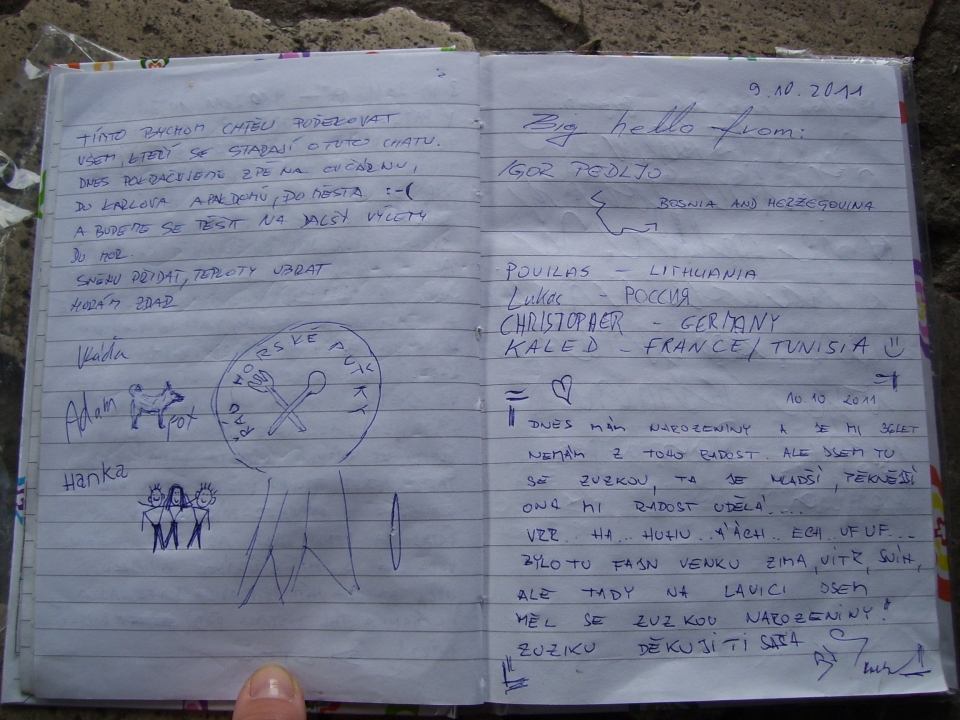 TÍMTO BYCHOM CHTĚLI PODĚKOVAT
VŠEM, KTEŘÍ SE STARAJÍ O TUTO CHATU.
DNES POKRAČUJEME ZPĚ NA OVČÁRNU,
DO KARLOVA A PAK DOMŮ, DO MĚSTA :-(
A BUDEME SE TĚŠIT NA DALŠÝ VÝLETY
DO HOR.
SNĚHU PŘIDAT, TEPLOTY UBRAT
HORÁM ZDAR
Adam
FOX
ŘÁD HORSKÉ
Hanka
9.10.2011
Big hello from:
IGOR PEDLJO
BOSNIA AND HERZEGOVINA
POVILAS - LITHUANIA
Lukas - РОССИЯ
CHRISTOPHER - GERMANY
KALED - FRANCE/TUNISIA
10.10 2011
DNES MÁM NAROZENINY A JE MI 36LET
NEMÁM Z TOHO RADOST. ALE JSEM TU
SE ZUZKOU, TA JE MLADŠÍ, PĚKNĚJŠÍ
ONA MI RADOST UDĚLÁ....
VRR.. HA... HUHU.. AÁCH.. ECH.. UF UF....
BYLO TU FAJN VENKU ZIMA, VÍTR, SNÍH,
ALE TADY NA LAVICI JSEM
MĚL SE ZUZKOU NAROZENINY!
ZUZIKU DĚKUJI TI SAŠA